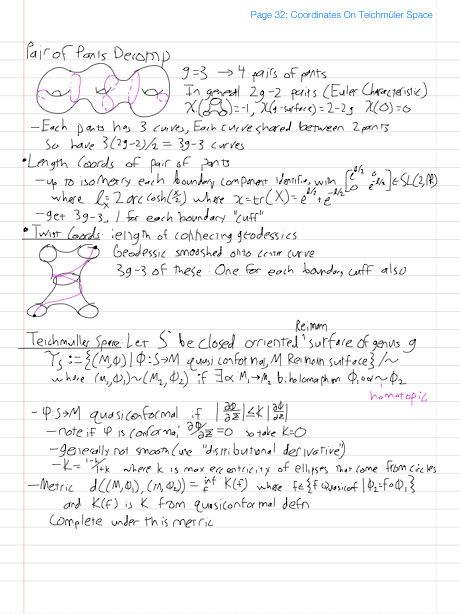 Page 32: Coordinates On Teichmüler Space
Pair of Pants Decomp
g=3 → 4 pairs of pants
In general 2g-2 pairs (Euler Characteristic)
χ( )=-1, χ(g-surface)=2-2g χ(O)=0
- Each pants has 3 curves, Each curve shared between 2 pants
So have 3(2g-2)/2 = 3g-3 curves
• Length Coords of pair of pants
- up to isometry each boundary component identifies with [e^{ℓ/2} 0 0 e^{-ℓ/2}] ∈ SL(2,ℝ)
where ℓ = 2 arccosh(x/2) where x = tr(X) = e^{ℓ/2} + e^{-ℓ/2}
- get 3g-3, 1 for each boundary "cuff"
• Twist Coords: length of connecting geodessics
Geodessic smooshed onto center curve
3g-3 of these: One for each boundary cuff also
Reimann
Teichmuller Space: Let S be closed orriented surface of genus g
:= {(M,Φ) | Φ: S→M quasi conformal, M Remain surface}/~
where (M₁,Φ₁)~(M₂,Φ₂) if ∃α: M₁→M₂ biholomorphm Φ₁∘α~Φ₂
homotopic
- φ: S→M quasiconformal if |∂Φ/∂z̄| ≤ K |∂Φ/∂z|
- note if φ is conformal ∂Φ/∂z̄ = 0 so take K=0
- generally not smooth (use "distributional derivative")
- K = 1-k/1+k where k is max eccentricity of ellipses that come from circles
- Metric d((M₁,Φ₁),(M₂,Φ₂)) = inf_f K(f) where f∈{f quasiconf | Φ₂=f∘Φ₁}
and K(f) is K from quasiconformal defn
Complete under this metric